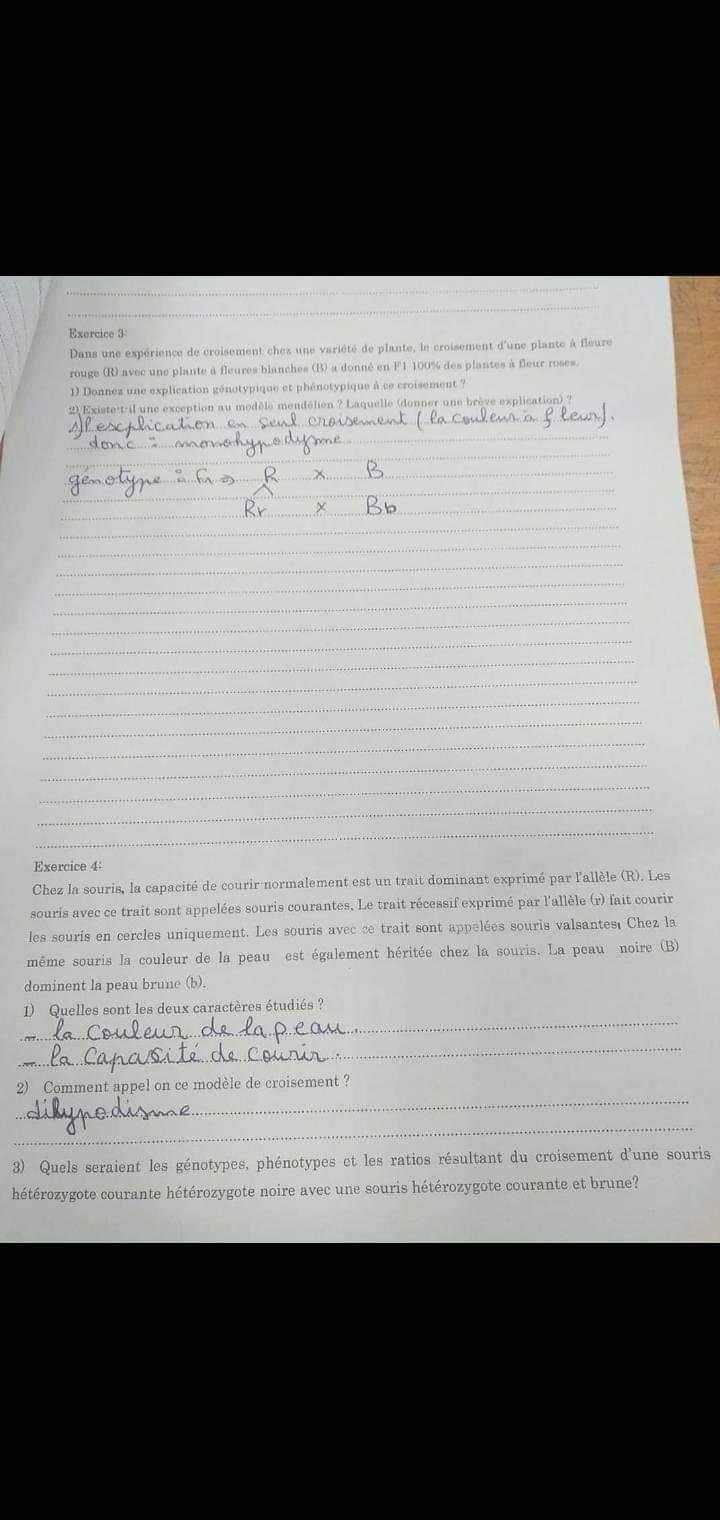 Exercice 3:
Dans une expérience de croisement chez une variété de plante, le croisement d'une plante à fleurs
rouge (R) avec une plante a fleures blanches (B) a donné en F1 100% des plantes à fleur roses.
1) Donnez une explication génotypique et phénotypique à ce croisement ?
2) Existe-t-il une exception au modèle mendélien ? Laquelle (donner une brève explication) ?
explication en seul croisement (la couleur à fleur).
donc : monohypodysme
génotype : F1 => R x B
Rr x Bb
Exercice 4:
Chez la souris, la capacité de courir normalement est un trait dominant exprimé par l'allèle (R). Les
souris avec ce trait sont appelées souris courantes. Le trait récessif exprimé par l'allèle (r) fait courir
les souris en cercles uniquement. Les souris avec ce trait sont appelées souris valsantes; Chez la
même souris la couleur de la peau est également héritée chez la souris. La peau noire (B)
dominent la peau brune (b).
1) Quelles sont les deux caractères étudiés ?
- la couleur de la peau.
- la capasité de courir.
2) Comment appel on ce modèle de croisement ?
dihypodisme
3) Quels seraient les génotypes, phénotypes et les ratios résultant du croisement d'une souris
hétérozygote courante hétérozygote noire avec une souris hétérozygote courante et brune?